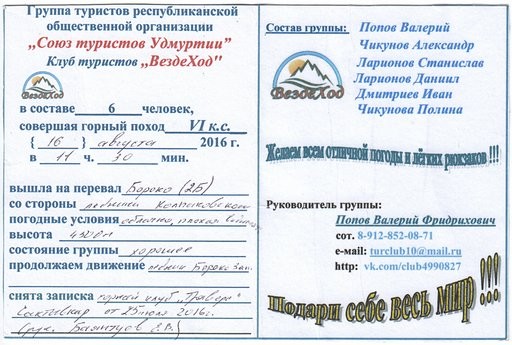 Группа туристов республиканской
общественной организации
„Союз туристов Удмуртии”
Клуб туристов „ВездеХод"
ВездеХод
в составе 6 человек,
совершая горный поход VI к.с.
{ 16 } августа 2016 г.
в 11 ч. 30 мин.
вышла на перевал Бороко (2Б)
со стороны
погодные условия облачно, плохая
высота
состояние группы хорошее
продолжаем движение ледник Бороко Зап.
снята записка горный клуб
Сыктывкар от 25 июля 2016г.
Состав группы: Попов Валерий
Чикунов Александр
Ларионов Станислав
Ларионов Даниил
Дмитриев Иван
Чикунова Полина
ВездеХод
Желаем всем отличной погоды и лёгких рюкзаков !!!
Руководитель группы:
Попов Валерий Фридрихович
сот. 8-912-852-08-71
е-маил: turclub10@mail.ru
http: vk.com/club4990827
Подари себе весь мир !!!